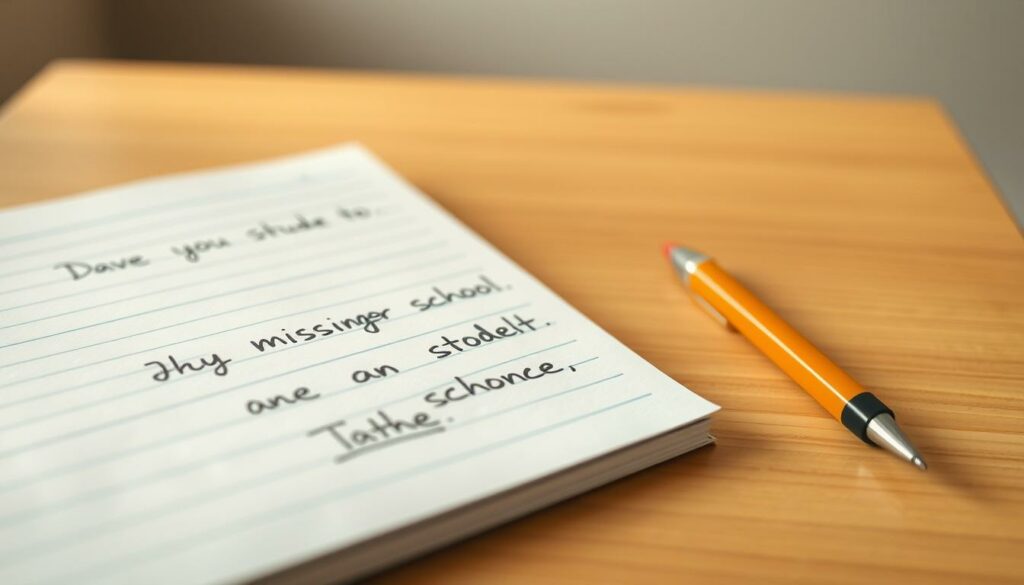 Dave you stude to.
Jhy missinger school.
ane an stodelt.
Tathe. schonce,